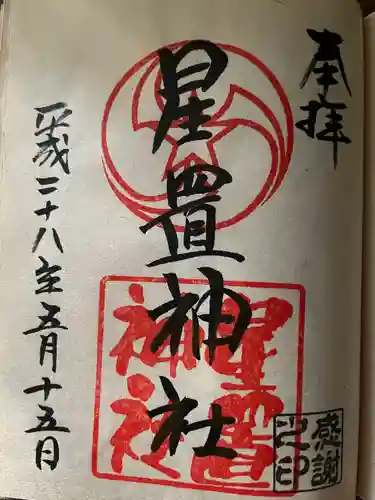 奉拝
星置神社
平成二十八年五月十五日
星置
神社
感謝
之印